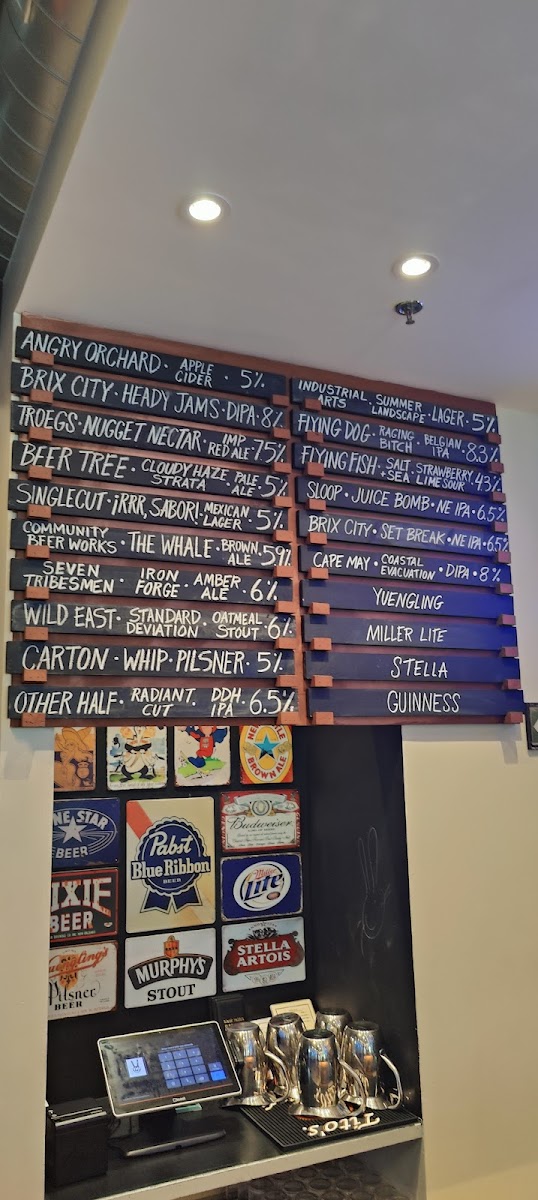 ANGRY ORCHARD · APPLE CIDER · 5%
BRIX CITY · HEADY JAMS · DIPA · 8%
TROEGS · NUGGET NECTAR · IMP RED ALE · 7.5%
BEER TREE · CLOUDY HAZE STRATA PALE ALE · 5%
SINGLECUT · ¡RRR, SABOR! MEXICAN LAGER · 5%
COMMUNITY BEER WORKS · THE WHALE · BROWN ALE 5.9%
SEVEN TRIBESMEN · IRON FORGE · AMBER ALE · 6%
WILD EAST · STANDARD DEVIATION · OATMEAL STOUT · 6%
CARTON · WHIP · PILSNER · 5%
OTHER HALF · RADIANT CUT · DDH IPA · 6.5%
INDUSTRIAL ARTS · SUMMER LANDSCAPE · LAGER · 5%
FLYING DOG · RAGING BITCH · BELGIAN IPA · 8.3%
FLYING FISH · SALT + SEA STRAWBERRY LIME SOUR · 4.3%
SLOOP · JUICE BOMB · NE IPA · 6.5%
BRIX CITY · SET BREAK · NE IPA · 6.5%
CAPE MAY · COASTAL EVACUATION · DIPA · 8%
YUENGLING
MILLER LITE
STELLA
GUINNESS
BROWN ALE
NE STAR
BEER
Pabst
Blue Ribbon
BEER
Budweiser
IXIE
BEER
Miller
Lite
Pilsner
BEER
MURPHY'S
STOUT
STELLA
ARTOIS
Tito's